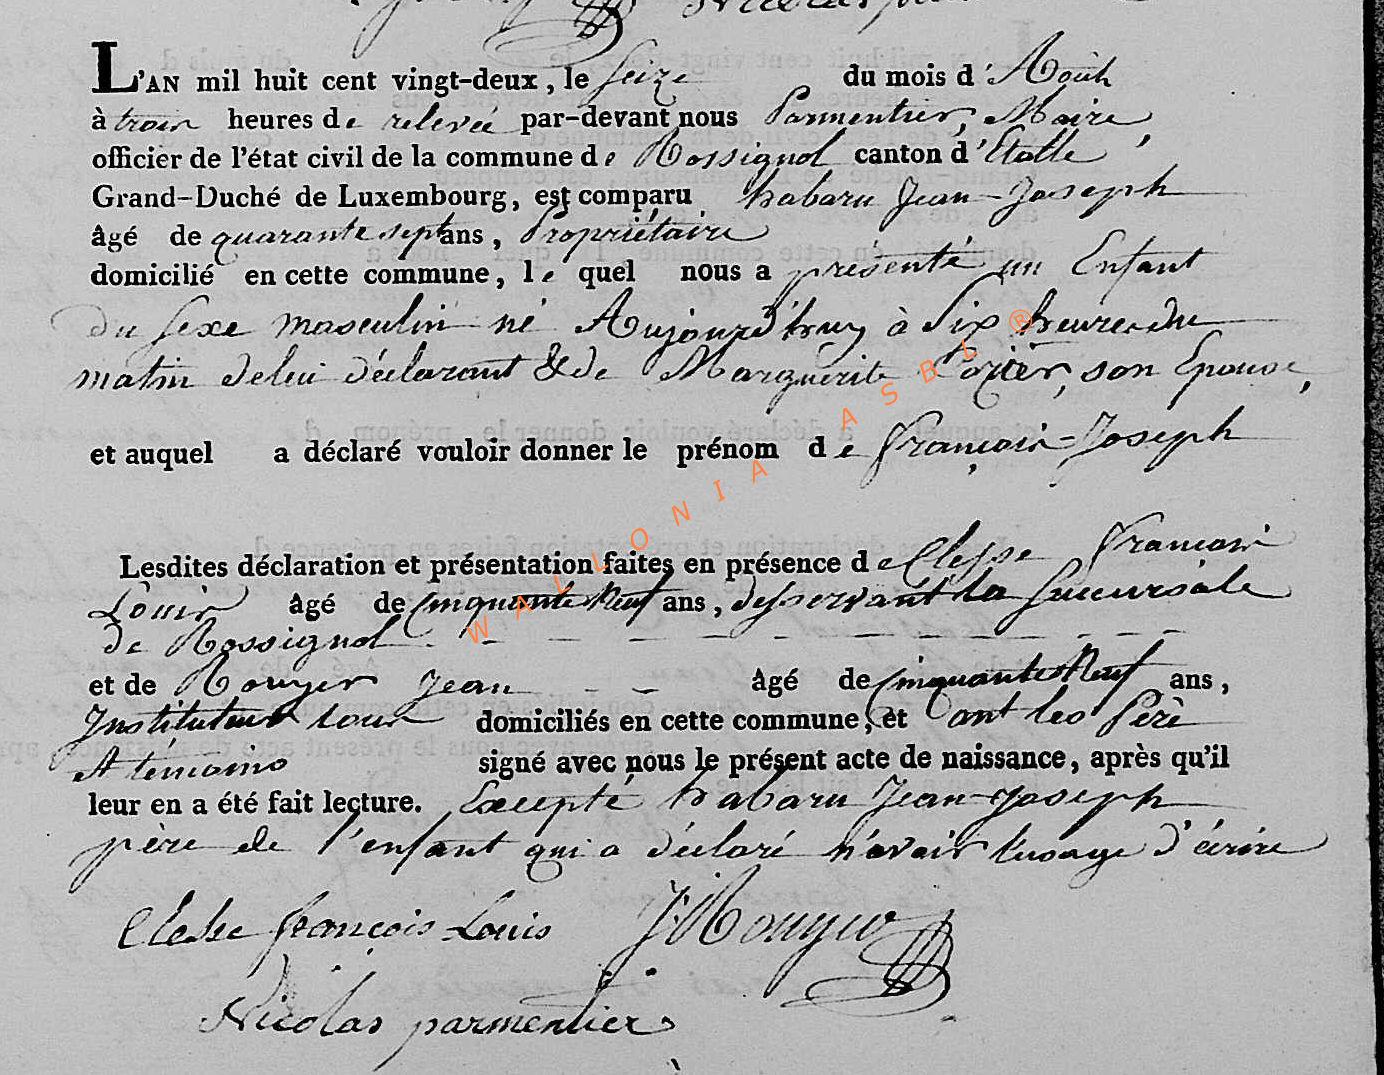 Nicolas
L'AN mil huit cent vingt-deux, le seize du mois d'Aout
à trois heures de relevée par-devant nous Parmentier, Maire
officier de l'état civil de la commune de Rossignol canton d'Etalle,
Grand-Duché de Luxembourg, est comparu habaru Jean-Joseph
âgé de quarante sept ans, Propriétaire
domicilié en cette commune, le quel nous a présenté un Enfant
du sexe masculin né Aujourd'huy à Six heures du
matin delui déclarant & de Marguerite son Epouse,
et auquel a déclaré vouloir donner le prénom de françois-Joseph
Lesdites déclaration et présentation faites en présence de Clesse françois
Louis âgé de Cinquante Neuf ans, desservant la succursale
de Rossignol
et de Rouyer Jean âgé de Cinquante Neuf ans,
Instituteur tous domiciliés en cette commune; et ont les Père
et témoins signé avec nous le présent acte de naissance, après qu'il
leur en a été fait lecture. Excepté habaru Jean-Joseph
père de l'enfant qui a déclaré n'avoir l'usage d'écrire
Clesse françois-Louis J Rouyer
Nicolas parmentier
WALLONIA ASBL ®